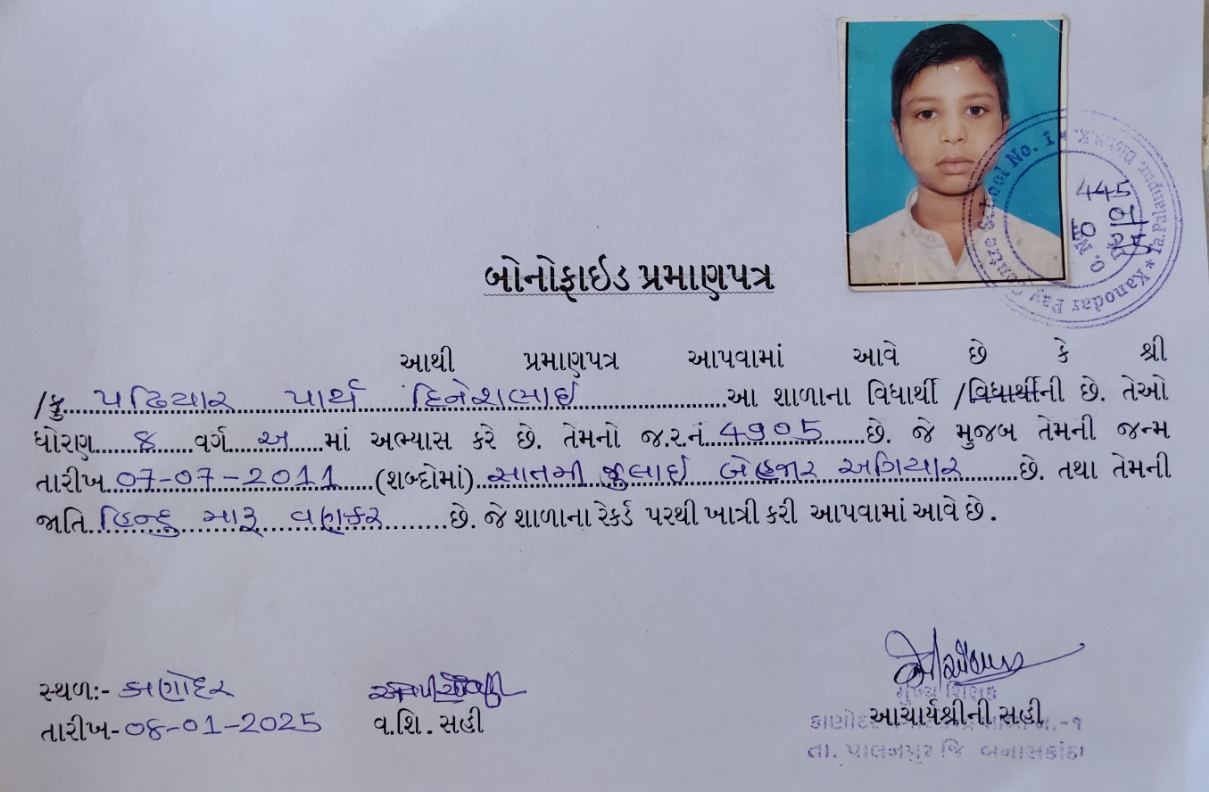 Kanodar Pay Centre School No. 1 * Ta.Palanpur, Dist.B.K. *
445
બોનોફાઈડ પ્રમાણપત્ર
આથી પ્રમાણપત્ર આપવામાં આવે છે કે શ્રી
/કુ. પઢિયાર પાર્થ દિનેશભાઈ આ શાળાના વિધાર્થી /વિધાર્થીની છે. તેઓ
ધોરણ 8 વર્ગ અ માં અભ્યાસ કરે છે. તેમનો જ.ર.નં. 4905 છે. જે મુજબ તેમની જન્મ
તારીખ 07-07-2011 (શબ્દોમાં) સાતમી જુલાઈ બેહજાર અગિયાર છે. તથા તેમની
જાતિ હિન્દુ મારૂ વણકર છે. જે શાળાના રેકર્ડ પરથી ખાત્રી કરી આપવામાં આવે છે.
સ્થળ:- કાણોદર
તારીખ- 08-01-2025 વ.શિ. સહી આચાર્યશ્રીની સહી
મુખ્ય શિક્ષક
કાણોદર -૧
તા. પાલનપુર જિ બનાસકાંઠા